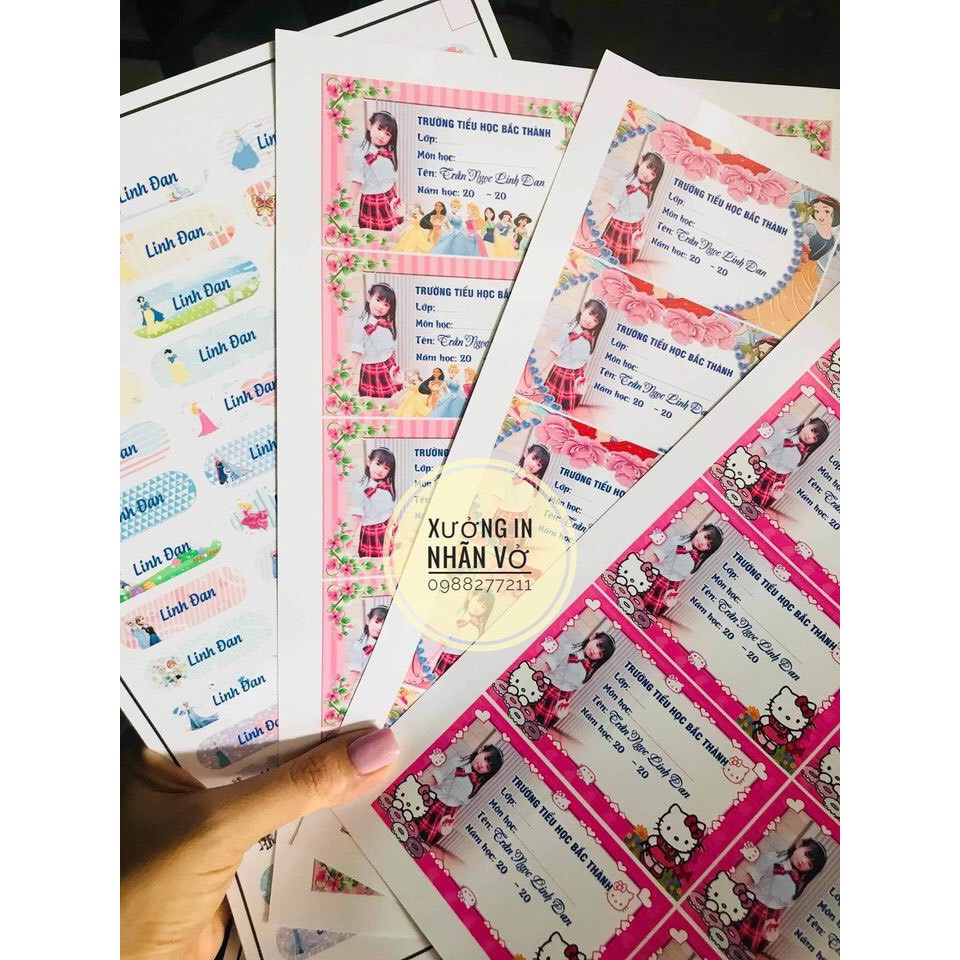 Linh
Linh Đan
Linh Đan
Linh Đan
Linh Đan
Linh Đan
Linh Đan
Linh Đan
Linh Đan
Linh Đan
Linh Đan
Linh Đan
Linh Đan
TRƯỜNG TIỂU HỌC BẮC THÀNH
Lớp:
Môn học:
Tên: Trần Ngọc Linh Đan
Năm học: 20 - 20
TRƯỜNG TIỂU HỌC
Lớp:
Môn học:
Tên: Trần Ngọc
Năm học: 20
TRƯỜNG
Lớp:
TRƯỜNG TIỂU HỌC BẮC THÀNH
Lớp:
Môn học:
Tên: Trần Ngọc Linh Đan
Năm học: 20 - 20
TRƯỜNG TIỂU HỌC BẮC THÀNH
Lớp:
Môn học:
Tên: Trần Ngọc Linh Đan
Năm học: 20 - 20
TRƯỜNG TIỂU HỌC BẮC THÀNH
Lớp:
Môn học:
Tên: Trần Ngọc Linh Đan
Năm học: 20
XƯỞNG IN
NHÃN VỞ
0988277211
Lớp:
Môn học:
Tên:
Năm học: 20
TRƯỜNG TIỂU HỌC BẮC THÀNH
Lớp:
Môn học:
Tên: Trần Ngọc Linh Đan
Năm học: 20 - 20
TRƯỜNG TIỂU HỌC BẮC THÀNH
Lớp:
Môn học:
Tên: Trần Ngọc Linh Đan
Năm học: 20 - 20
TRƯỜNG TIỂU HỌC BẮC THÀNH
Lớp:
Môn học:
Tên: Trần Ngọc Linh Đan
Năm học: 20 - 20